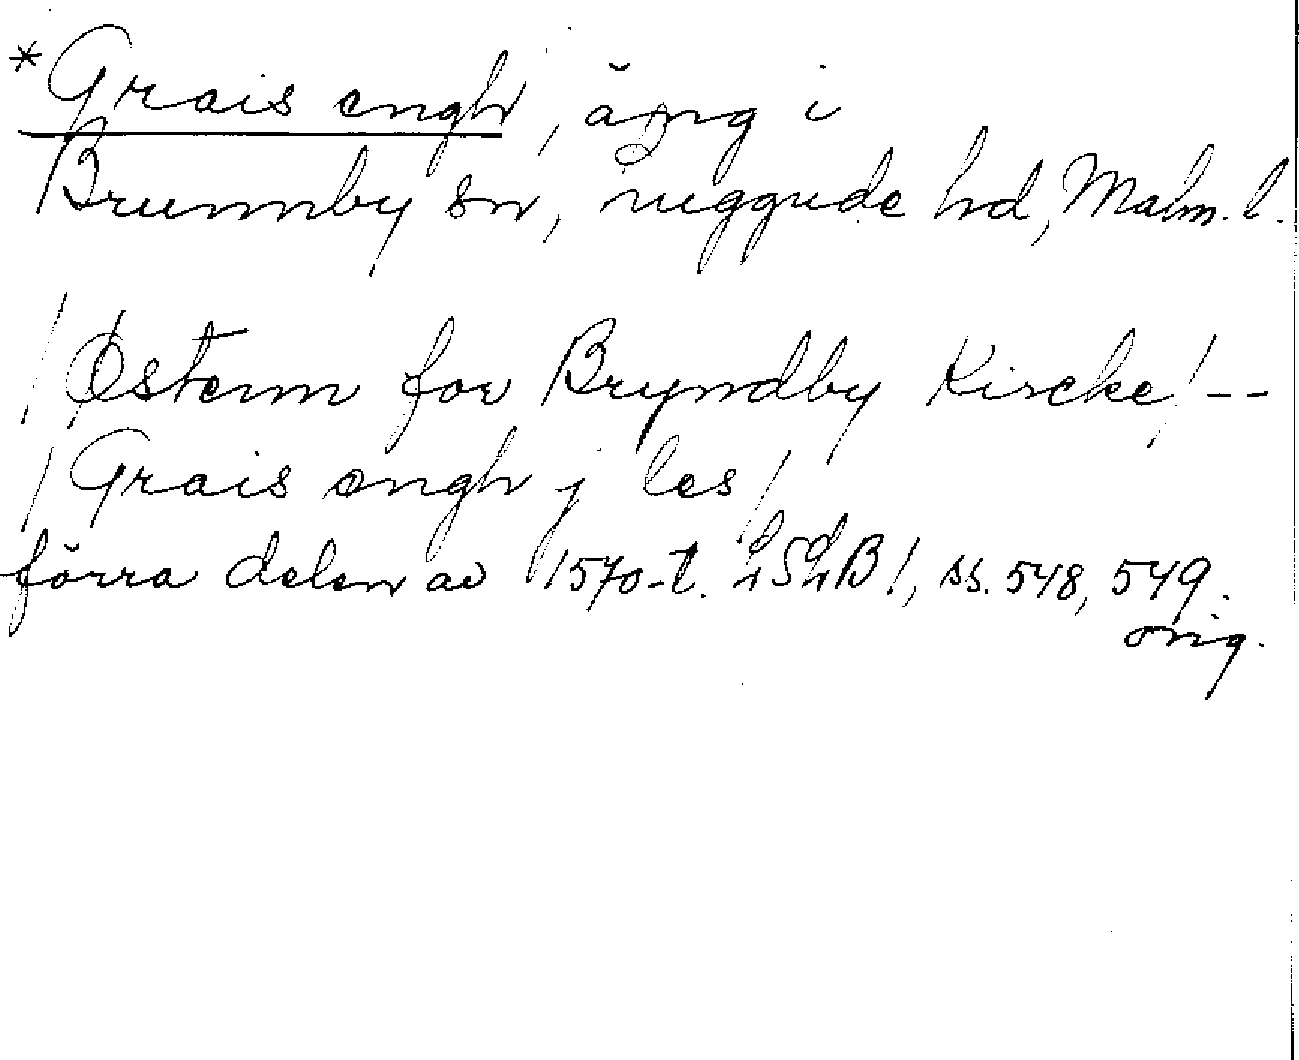 *Grais engh, äng i
Brunnby sn, Luggude hd, Malm. l.
/Østenn for Bryndby Kircke/--
/Grais engh j les/
förra delen av 1570-t. LSLB 1, ss. 548, 549.
orig.